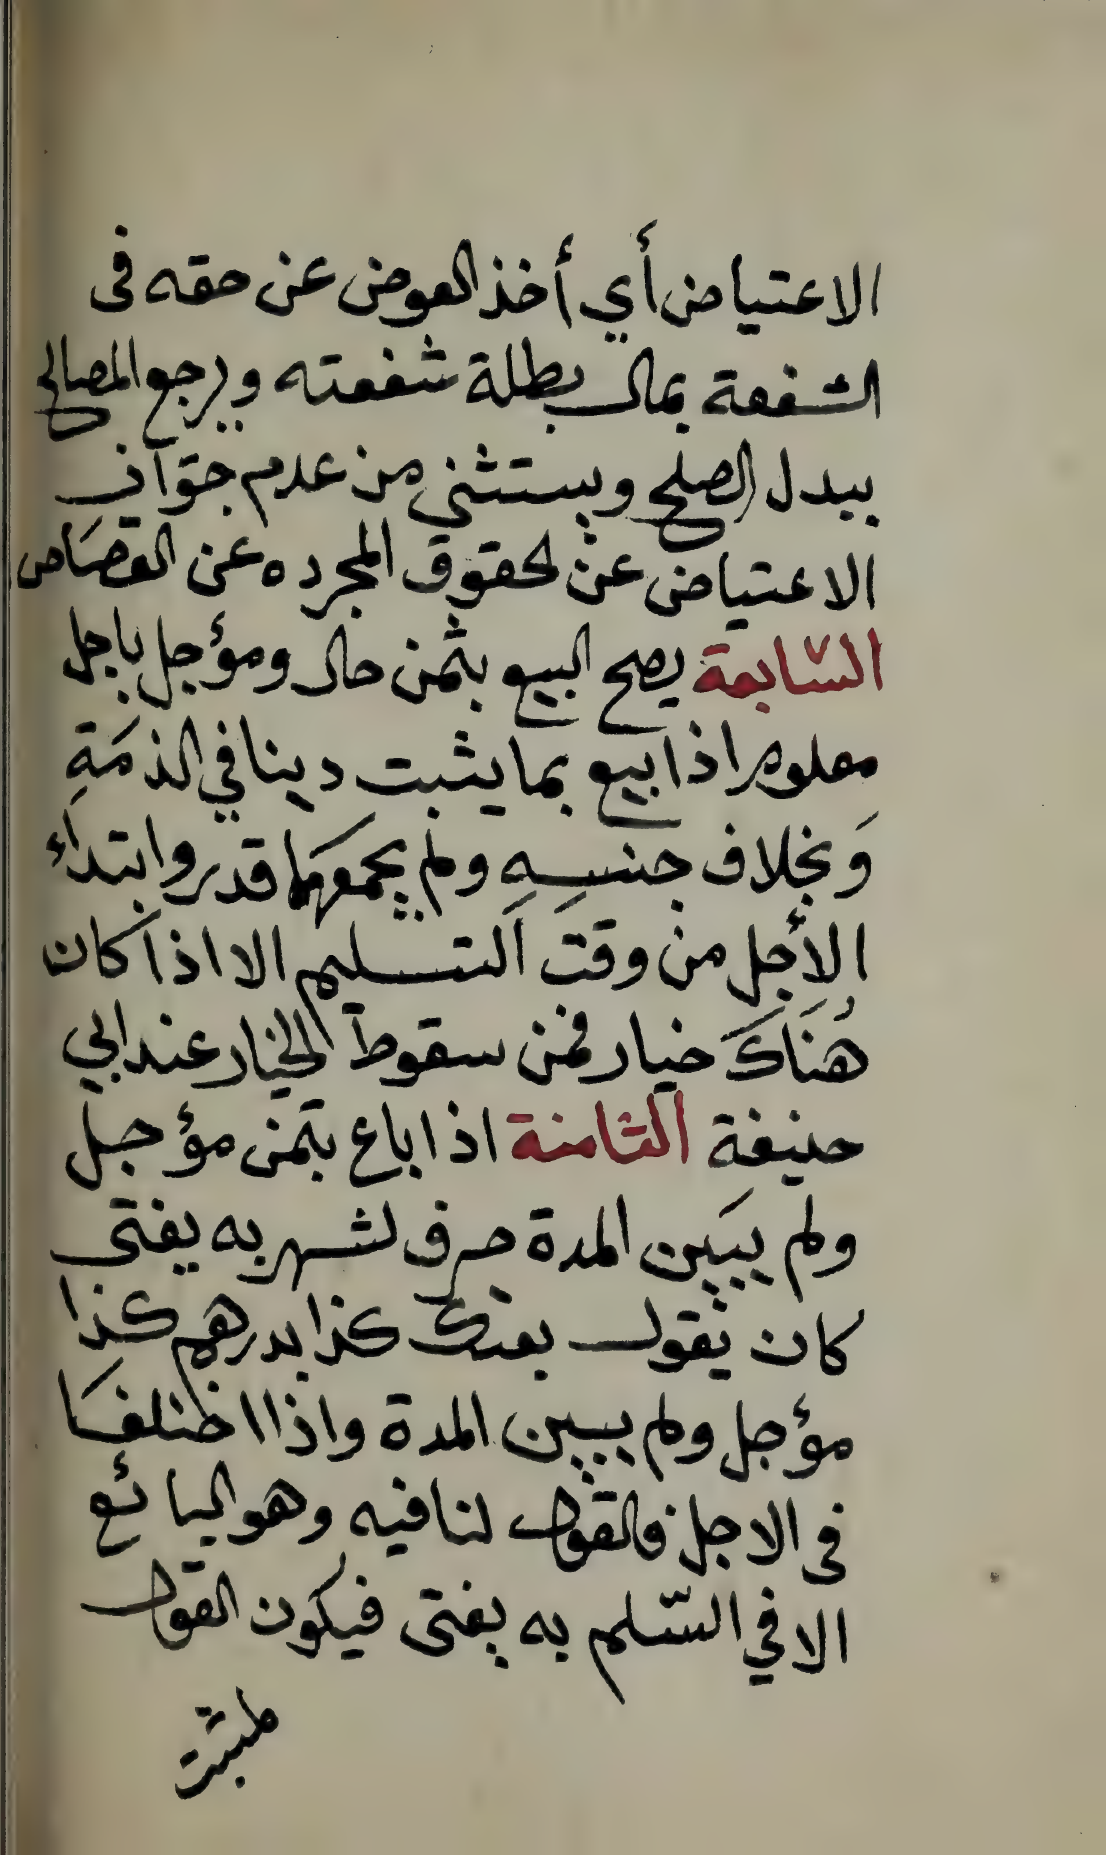 الاعتياض أي أخذ العوض عن حقه فى
الشفعة بمال بطلة شفعته ويرجع المصالح
ببدل الصلح ويستثنى من عدم جواز
الاعتياض عن لحقوق المجرده عن القصاص
السّابعة يصح البيع بثمن حال ومؤجل باجل
معلوم اذا بيع بما يثبت دينا في الذمَةِ
وَبخلاف جنسِهِ ولم يجمعهَما قدر وابتداء
الأجل من وقتَ التسليم الا اذا كان
هُنَاكَ خيار فمن سقوط الخيار عند ابي
حنيفة الثامنة اذا باع بثمن مؤجل
ولم يبَين المدة صرف لشهر به يفتى
كان يقول بعتك كذا بدرهم كذا
مؤجل ولم يبين المدة واذا اختلفَا
فى الاجل فالقول لنافيه وهو البائع
الا في السّلم به يفتى فيكون القول
لمثبته